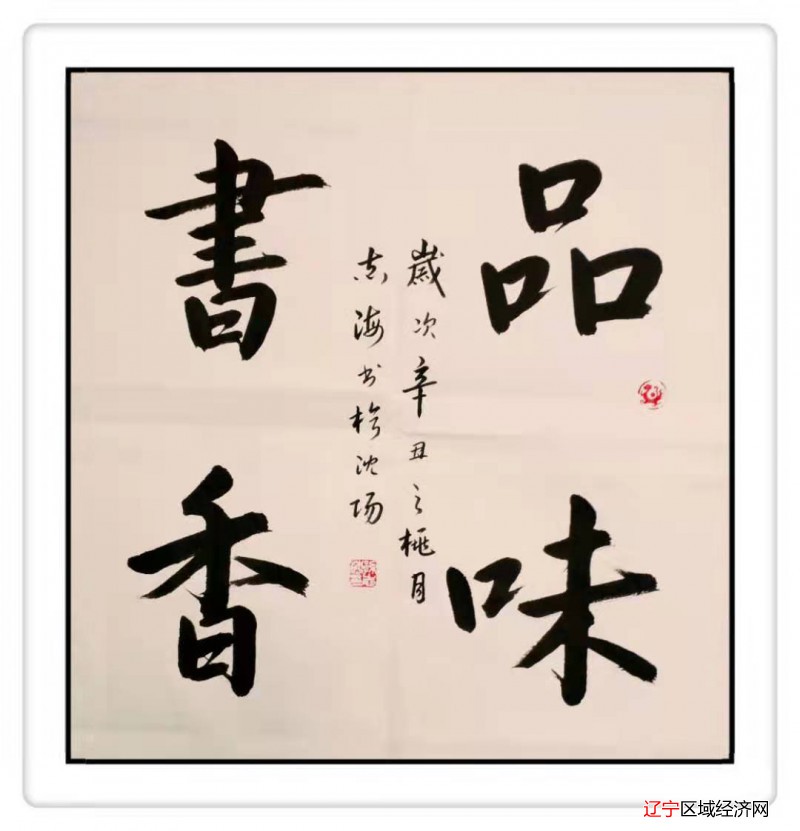 品味
書香
歲次辛丑之桃月
志海书於沈阳
辽宁区域经济网